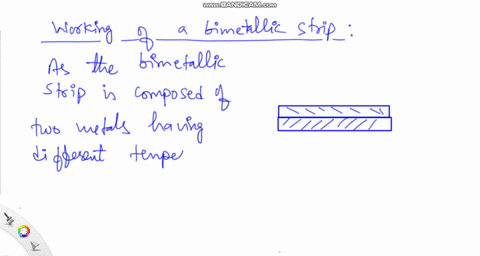 WWW.BANDICAM.COM
Working of a bimetallic strip:
As the bimetallic
strip is composed of
two metals having
different tempe